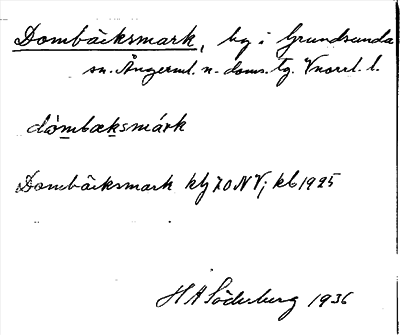 Dombäcksmark, by i Grundsunda
sn. Ångerml. n. doms. tg. Vnorrl. l.
dòmbæksmárk
Dombäcksmark ktg 70 NV; kb 1925
H A Söderberg 1936